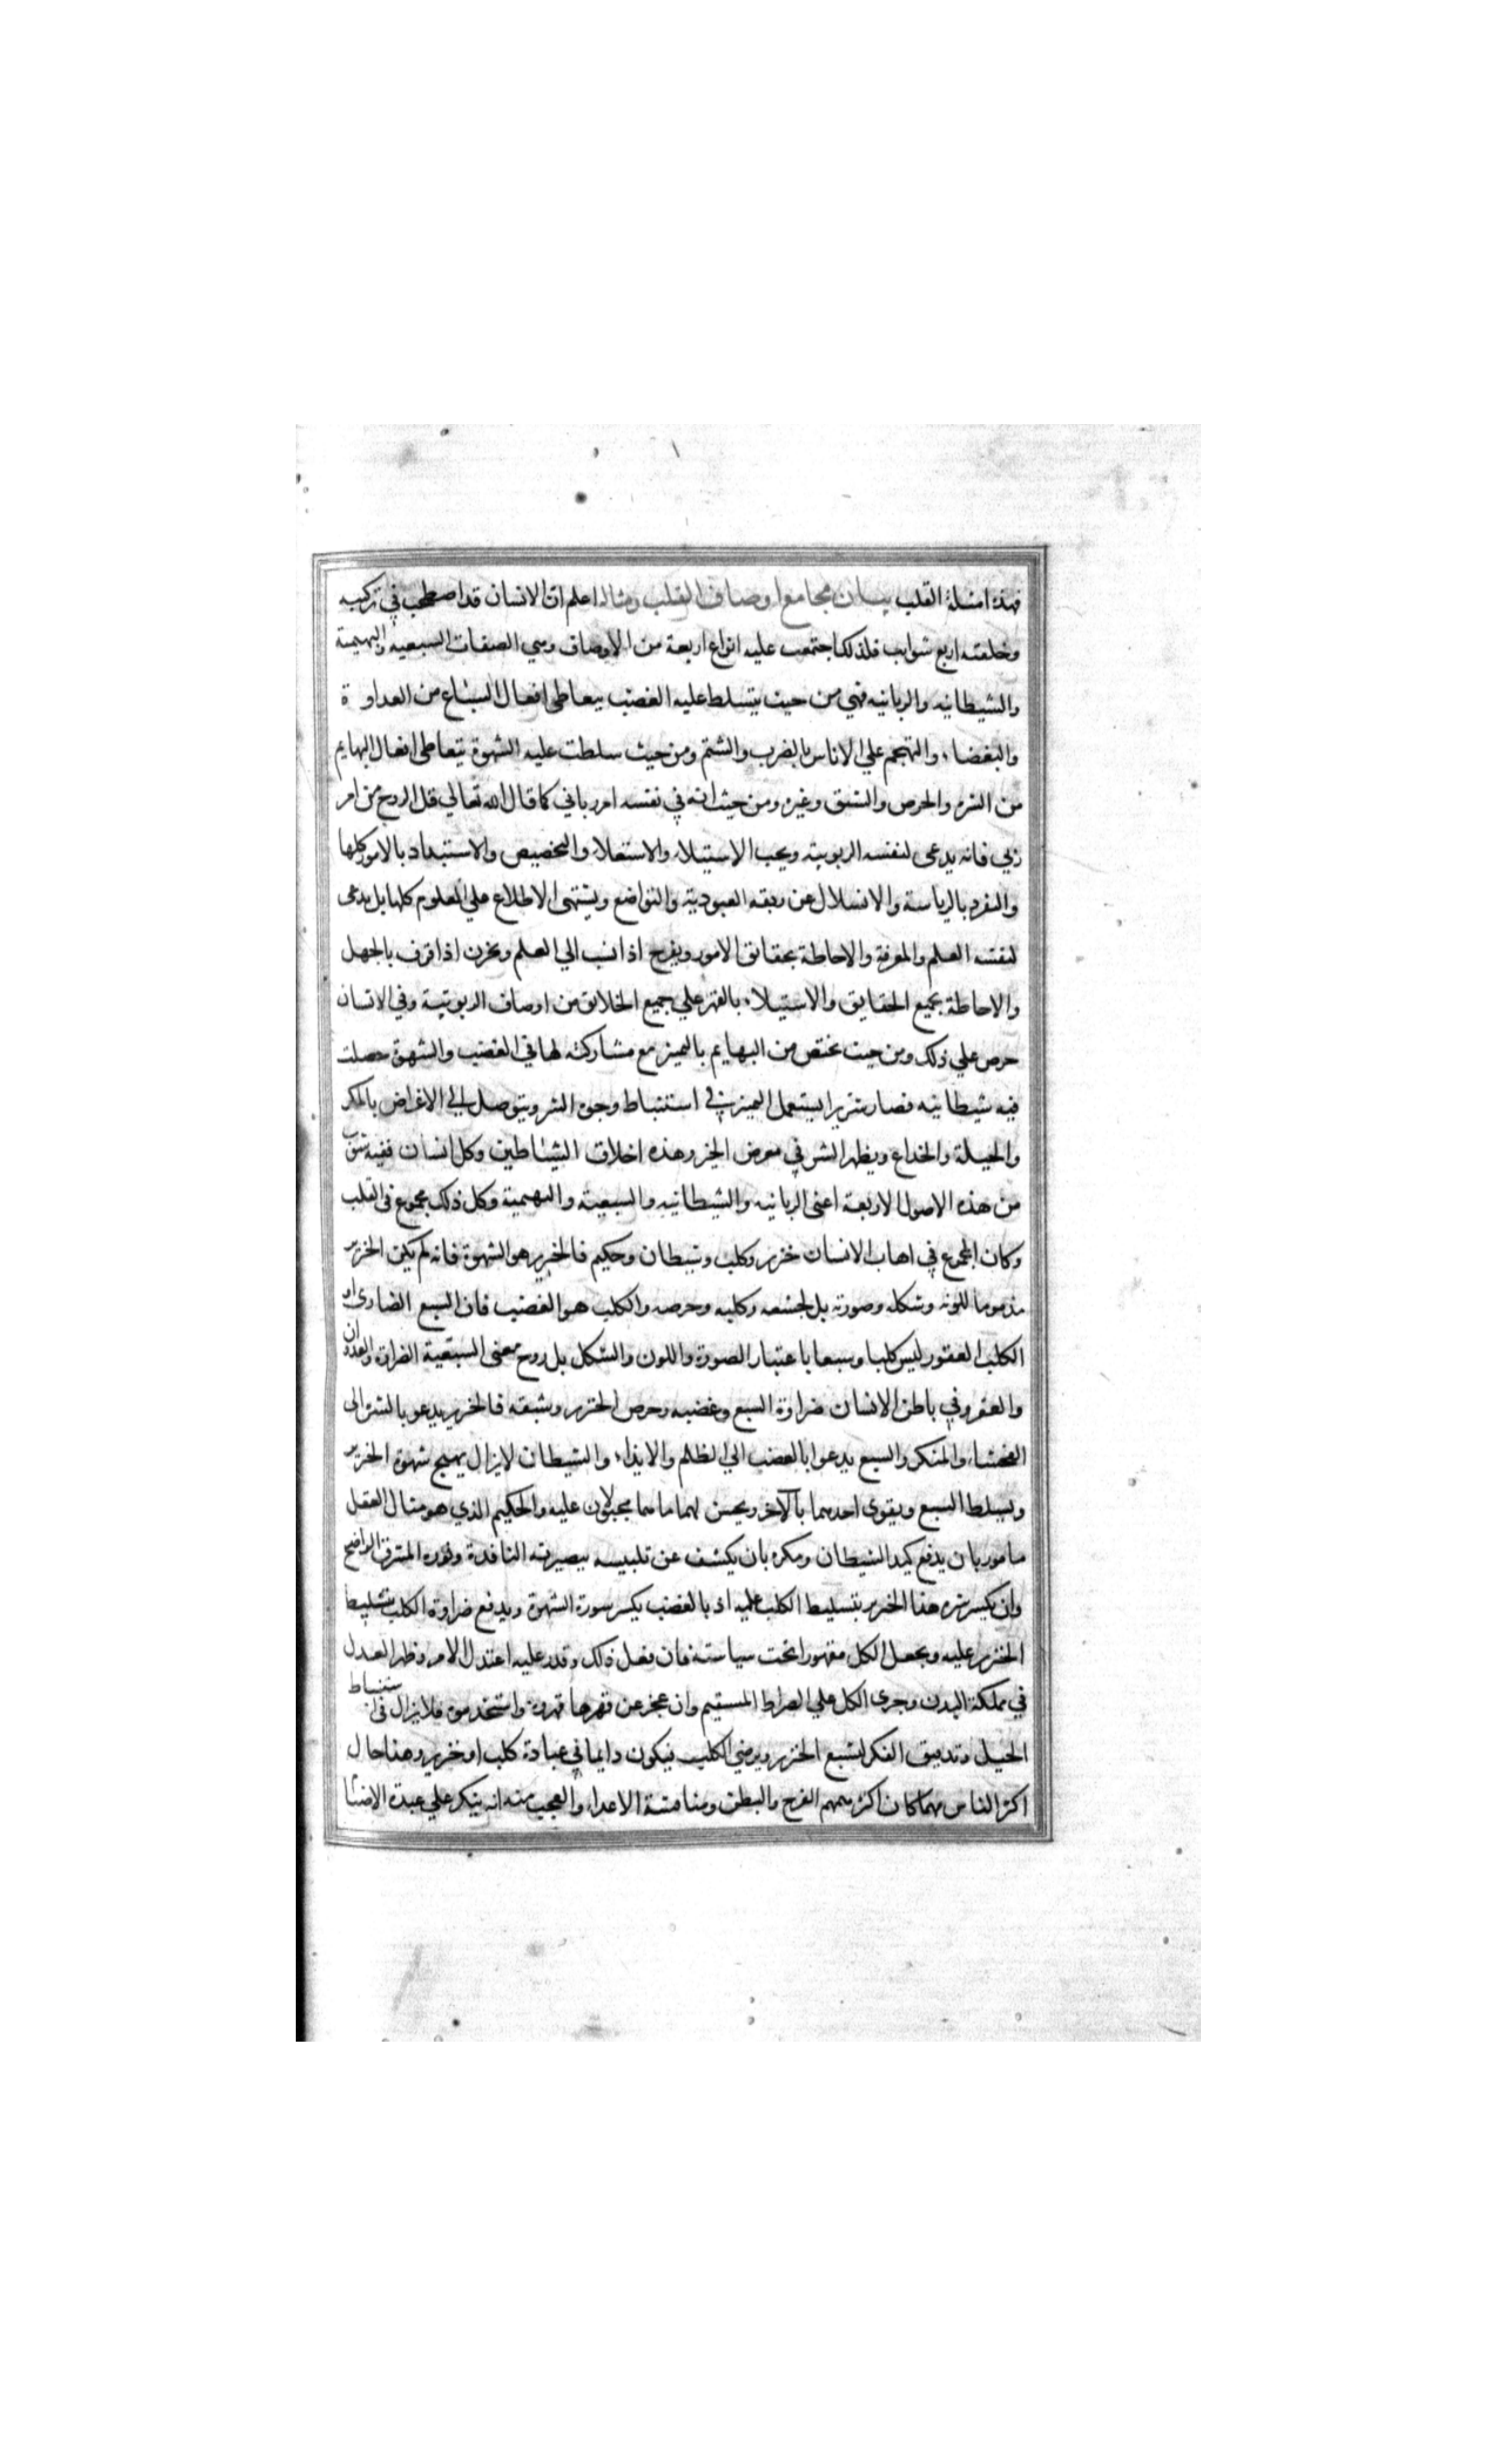 فهذه امثلة القلب بيان مجامع اوصاف القلب ومثاله اعلم ان الانسان قد اصطحب في تركيبه
وخلقته اربع شوايب فلذلك اجتمعت عليه انواع اربعة من الاوصاف وهي الصفات السبعية والبهيمية
والشيطانيه والربانيه فهي من حيث يتسلط عليه الغضب يتعاطى افعال السباع من العداوة
والبغضاء والتهجم علي الاناس بالضرب والشتم ومن حيث سلطت عليه الشهوة يتعاطى افعال البهايم
من الشره والحرص والشبق وغيره ومن حيث انه في نفسه امر رباني كما قال الله تعالي قل الروح من امر
ربي فانه يدعى لنفسه الربوبية ويحب الاستيلاء والاستعلا والتخصيص والاستبداد بالامور كلها
والتفرد بالرياسة والانسلال عن ربقه العبودية والتواضع ويشتهى الاطلاع علي العلوم كلها بل يدعى
لنفسه العلم والمعرفة والاحاطة بحقايق الامور ويفرح اذا نسب الي العلم ويحزن اذا قرف بالجهل
والاحاطة بجميع الحقايق والاستيلاء بالقهر علي جميع الخلايق من اوصاف الربوبية وفي الانسان
حرص علي ذلك ومن حيث يختص من البهايم بالتميز مع مشاركته لها في الغضب والشهوة حصلت
فيه شيطانيه فصار شريرا يستعمل التميز في استنباط وجوه الشر ويتوصل الي الاغراض بالمكر
والحيلة والخداع ويظهر الشر في معرض الخير وهذه اخلاق الشياطين وكل انسان ففيه شوب
من هذه الاصول الاربعة اعنى الربانيه والشيطانيه والسبعية والبهيمية وكل ذلك مجموع في القلب
وكان المجموع في اهاب الانسان خنزير وكلب وشيطان وحكيم فالخنزير هو الشهوة فانه لم يكن الخنزير
مذموما للونه وشكله وصورته بل لجشعه وكلبه وحرصه والكلب هو الغضب فان السبع الضارى او
الكلب العقور ليس كلبا وسبعا باعتبار الصورة واللون والشكل بل روح معنى السبعية الضراوة والعدوان
والعقر وفي باطن الانسان ضراوة السبع وغضبه وحرص الخنزير وشبقه فالخنزير يدعو بالشره الى
الفحشاء والمنكر والسبع يدعوا بالغضب الي الظلم والايذاء والشيطان لايزال يهيج شهوة الخنزير
وتسلط السبع ويقوى احدهما بالآخر ويحسن لهما ما هما مجبولان عليه والحكيم الذي هو مثال العقل
مامور بان يدفع كيد الشيطان ومكره بان يكشف عن تلبيسه ببصيرته النافدة ونوره المشرق الواضح
وان يكسر شره هذا الخنزير بتسليط الكلب عليه اذ بالغضب يكسر سورة الشهوة ويدفع ضراوة الكلب بتسليط
الخنزير عليه ويجعل الكل مقهورا تحت سياسته فان فعل ذلك وقدر عليه اعتدل الامر وظهر العدل
في مملكة البدن وجرى الكل علي الصراط المستقيم وان عجز عن قهرها قهروه واستخدموه فلايزال في استنباط
الحيل وتدقيق الفكر لشبع الخنزير ويرضي الكلب فيكون دايما في عبادة كلب او خنزير وهذا حال
اكثر الناس مهما كان اكثر همهم الفرج والبطن ومنافسة الاعداء والعجب منه انه ينكر علي عبدة الاصنا